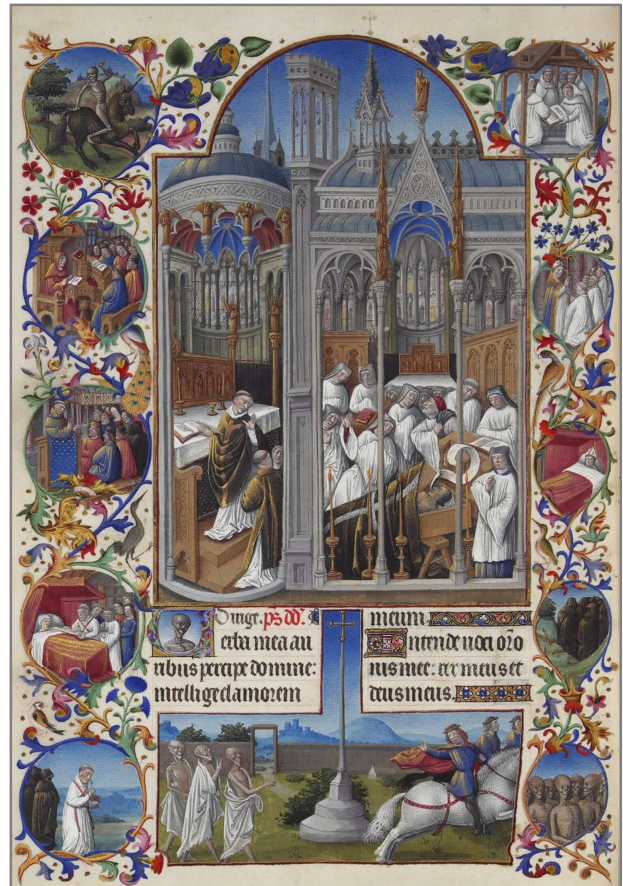 Dirige. ps dd'.
Verba mea au
ribus percipe domine:
intellige clamorem
meum.
Intende uoci oro
nis mee: rex meus et
deus meus.